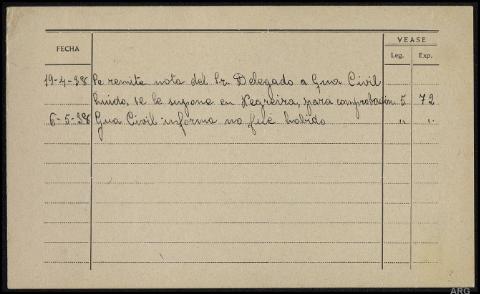 VEASE
FECHA Leg. Exp.
19-4-38 Se remite nota del Sr. Delegado a Gua Civil
huido, se le supone en Negreira, para comprobación. 5 72
6-5-38 Gua Civil informa no fué habido " "
ARG